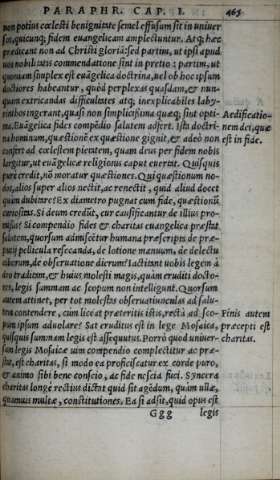 PARAPHR. CAP. I. 463
non potius cœlesti benignitate semel effusam sit in vniuer
sos, quicunq; fidem euangelicam amplectuntur. Atq; hæc
prædicant non ad Christi gloriã: sed partim, ut ipsi apud
uos nobilitatis commendatione sint in pretio: partim, ut
quoniam simplex est euãgelica doctrina, uel ob hoc ipsum
doctiores habeantur, quòd perplexas quasdam, & nun-
quam extricandas difficultates atq; inexplicabiles laby-
rinthos ingerant, quasi non simplicissima quæq; sint opti-
ma. Euãgelica fides compẽdio salutem adfert. Ista doctri-
na hominum, quæstionẽ ex quæstione gignit, & adeò non
confert ad cœlestem pietatem, quam deus per fidem nobis
largitur, ut euãgelicæ religionis caput euertat. Quisquis
purè credit, nõ moratur quæstiones. Qui quæstionum no-
dos, alios super alios nectit, ac renectit, quid aliud docet
quàm dubitare? Ex diametro pugnat cum fide, quæstionũ
curiositas. Si deum credũt, cur caussificantur de illius pro-
missis? Si compendio fides & charitas euangelica præstat
salutem, quorsum admiscẽtur humana præscripta de præ-
putij pellicula resecanda, de lotione manuum, de delectu
ciborum, de obseruatione dierum?
dro traditam, & huius molesti magis, quàm eruditi docto-
res, legis summam ac scopum non intelligunt. Quorsum
autem attinet, per tot molestas obseruatiunculas ad salu-
tem contendere, cum liceat præteritis istis, rectà ad sco-
pum ipsum aduolare? Sat eruditus est in lege Mosaica,
quisquis summam legis est assequutus. Porrò quod vniuer-
sam legis Mosaicæ uim compendio complectitur ac præ-
stat, est charitas, si modo ea proficiscatur ex corde puro,
& animo sibi bene conscio, ac fide nescia fuci. Syncera
charitas longè rectius dictat quid sit agẽdum, quàm ullæ,
quamuis multæ, constitutiones. Ea si adsit, quid opus est
Ggg legis
Aedificatio-
nem dei, quæ
est in fide.
Finis autem
præcepti est
charitas.